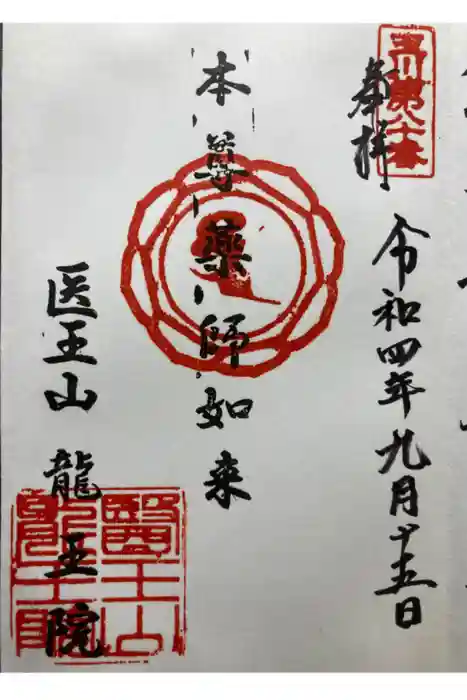 奉拝
令和四年九月十五日
本尊薬師如来
医王山 龍王院
醫王山
龍王院